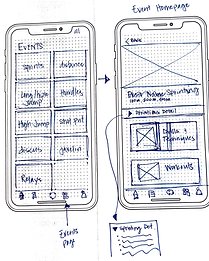 Event Homepage
EVENTS
sprints
distance
Long/triple
Jump
Hurdles
High Jump
shot put
discus
javelin
Relays
Events
page
< Back
Event Name: Sprinting
100m, 200m, 400m
Drills &
Techniques
Workouts